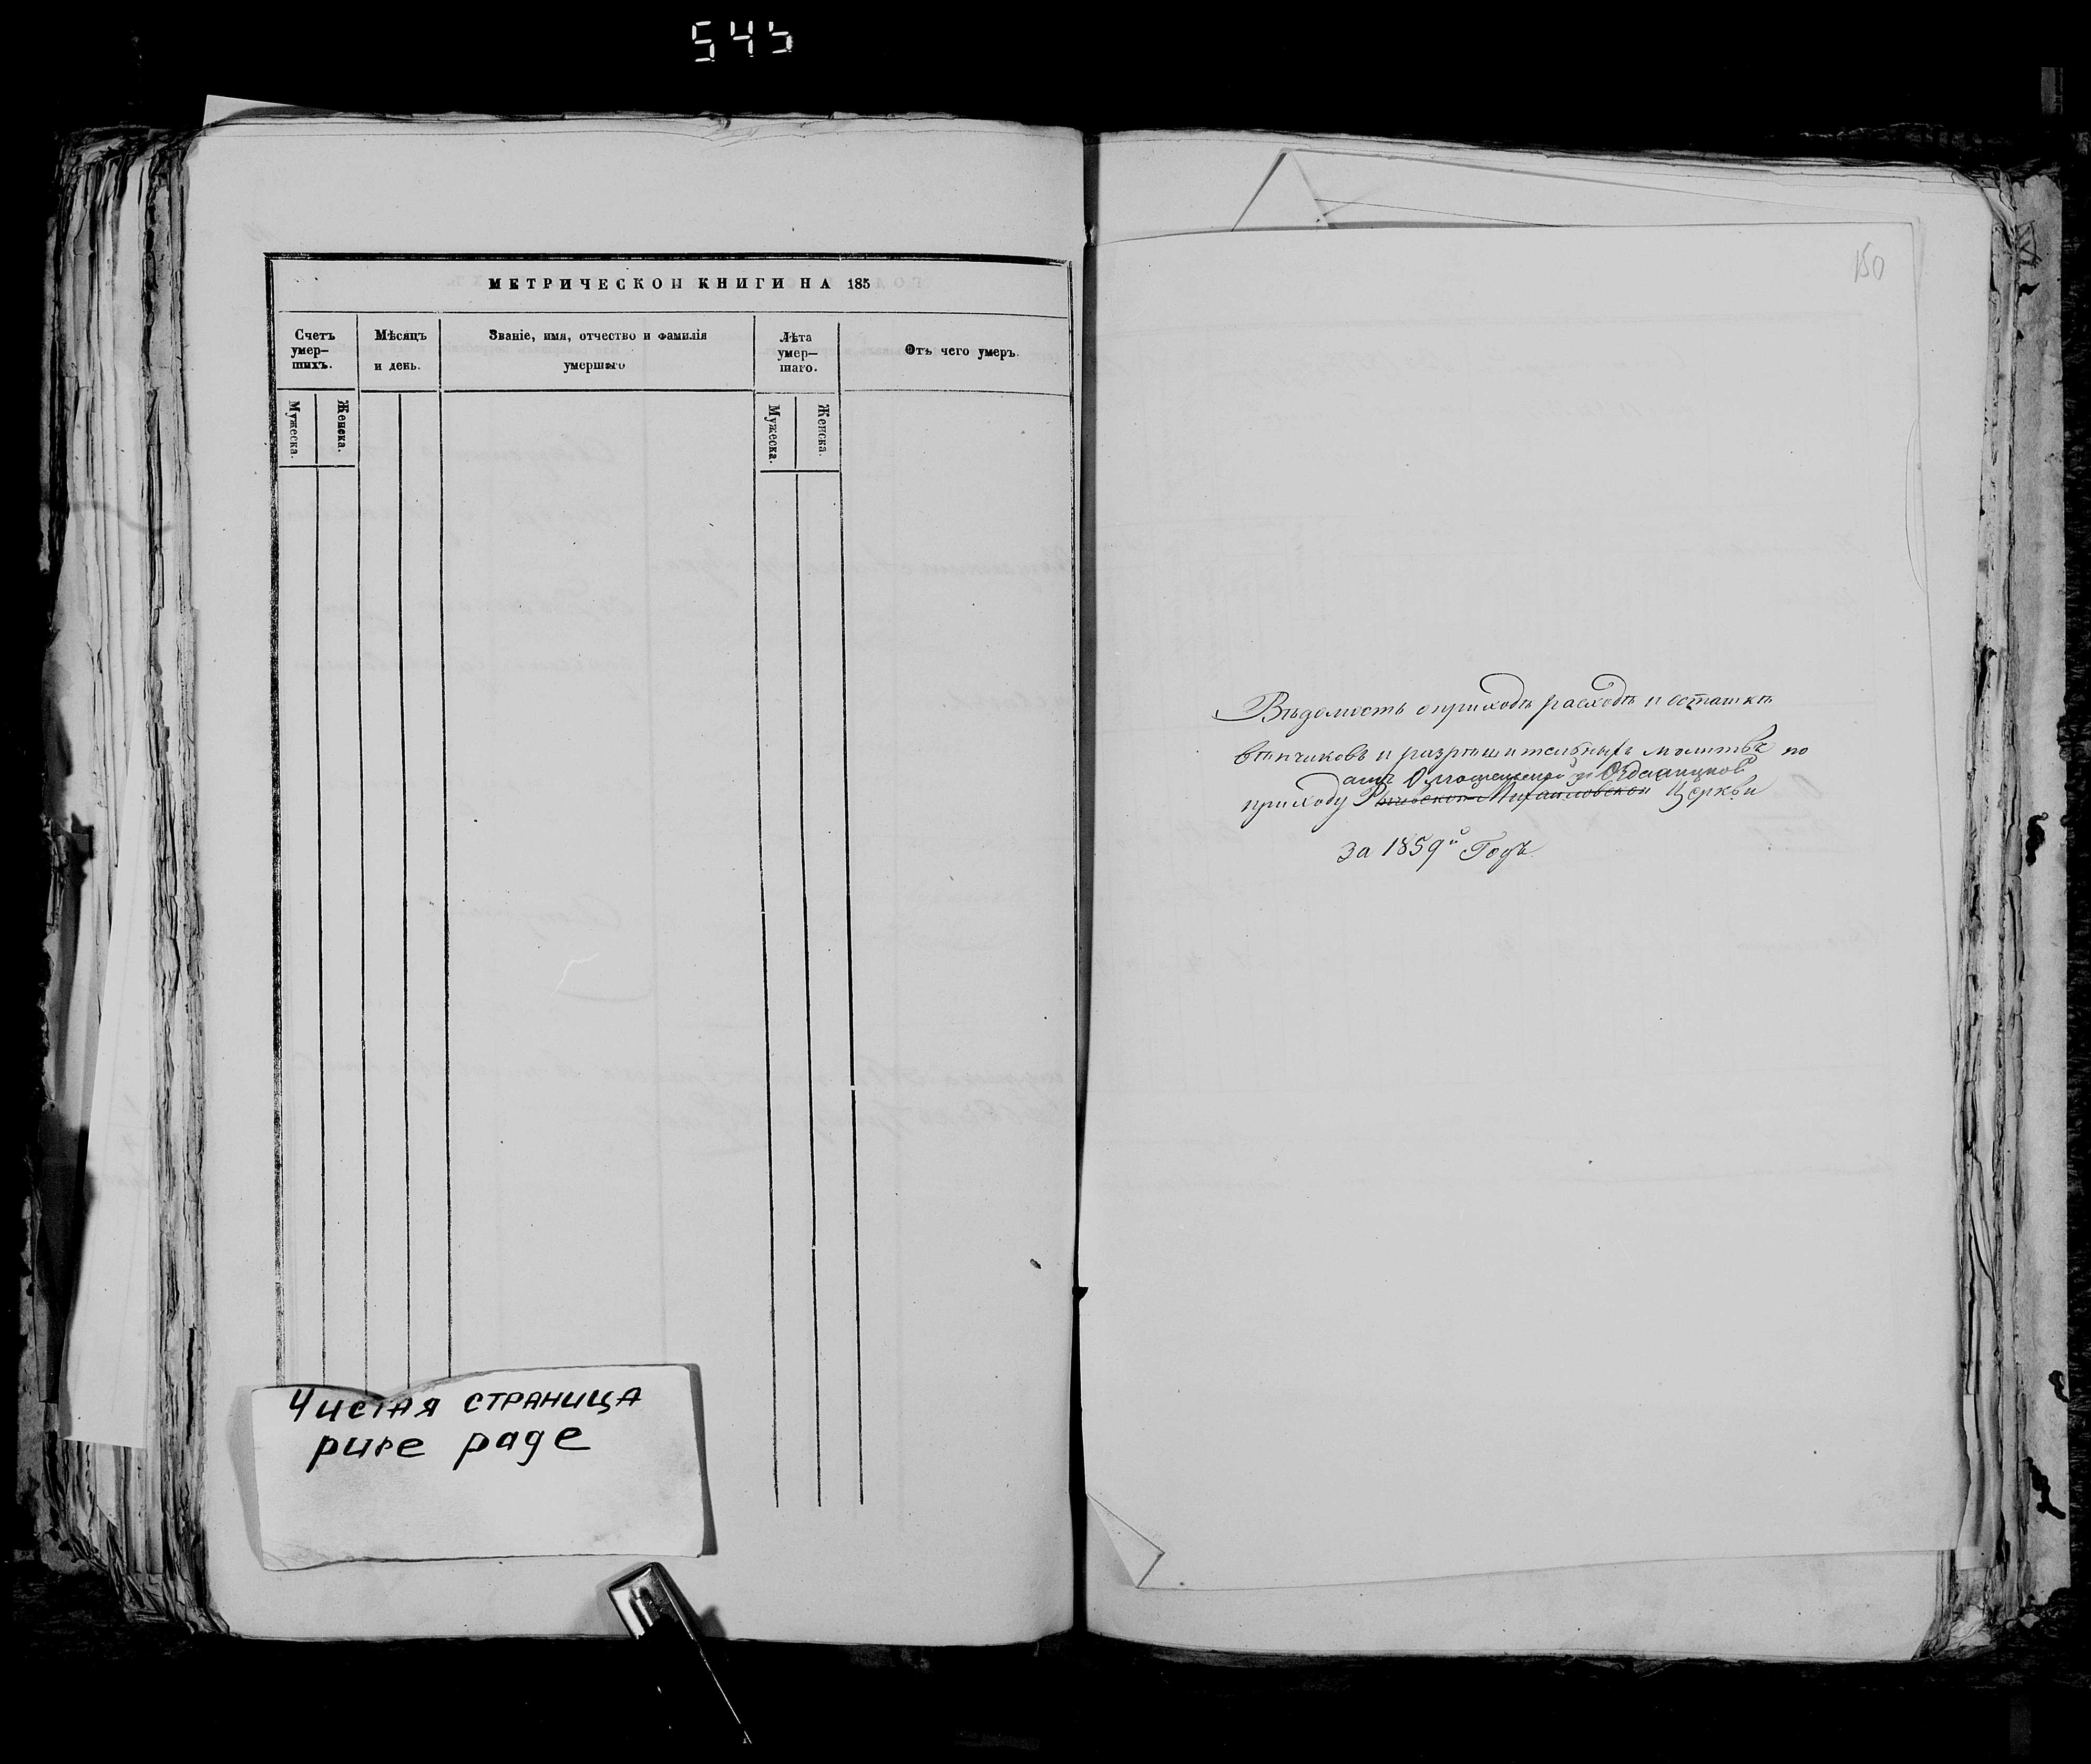 545
МЕТРИЧЕСКОЙ КНИГИ НА 185
Счетъ
умер–
шихъ.
Мѣсяцъ
и день.
Званіе, имя, отчество и фамилія
умершаго
Лѣта
умер–
шаго.
Отъ чего умеръ.
Мужеска.
Женска.
Мужеска.
Женска.
Чистая страница
pure page
150
Вѣдомость о приходѣ расходѣ и остаткѣ
вѣнчиковъ и разрѣшительныхъ молитвъ по
приходу Михайловской Церкви
за 1859й Годъ.